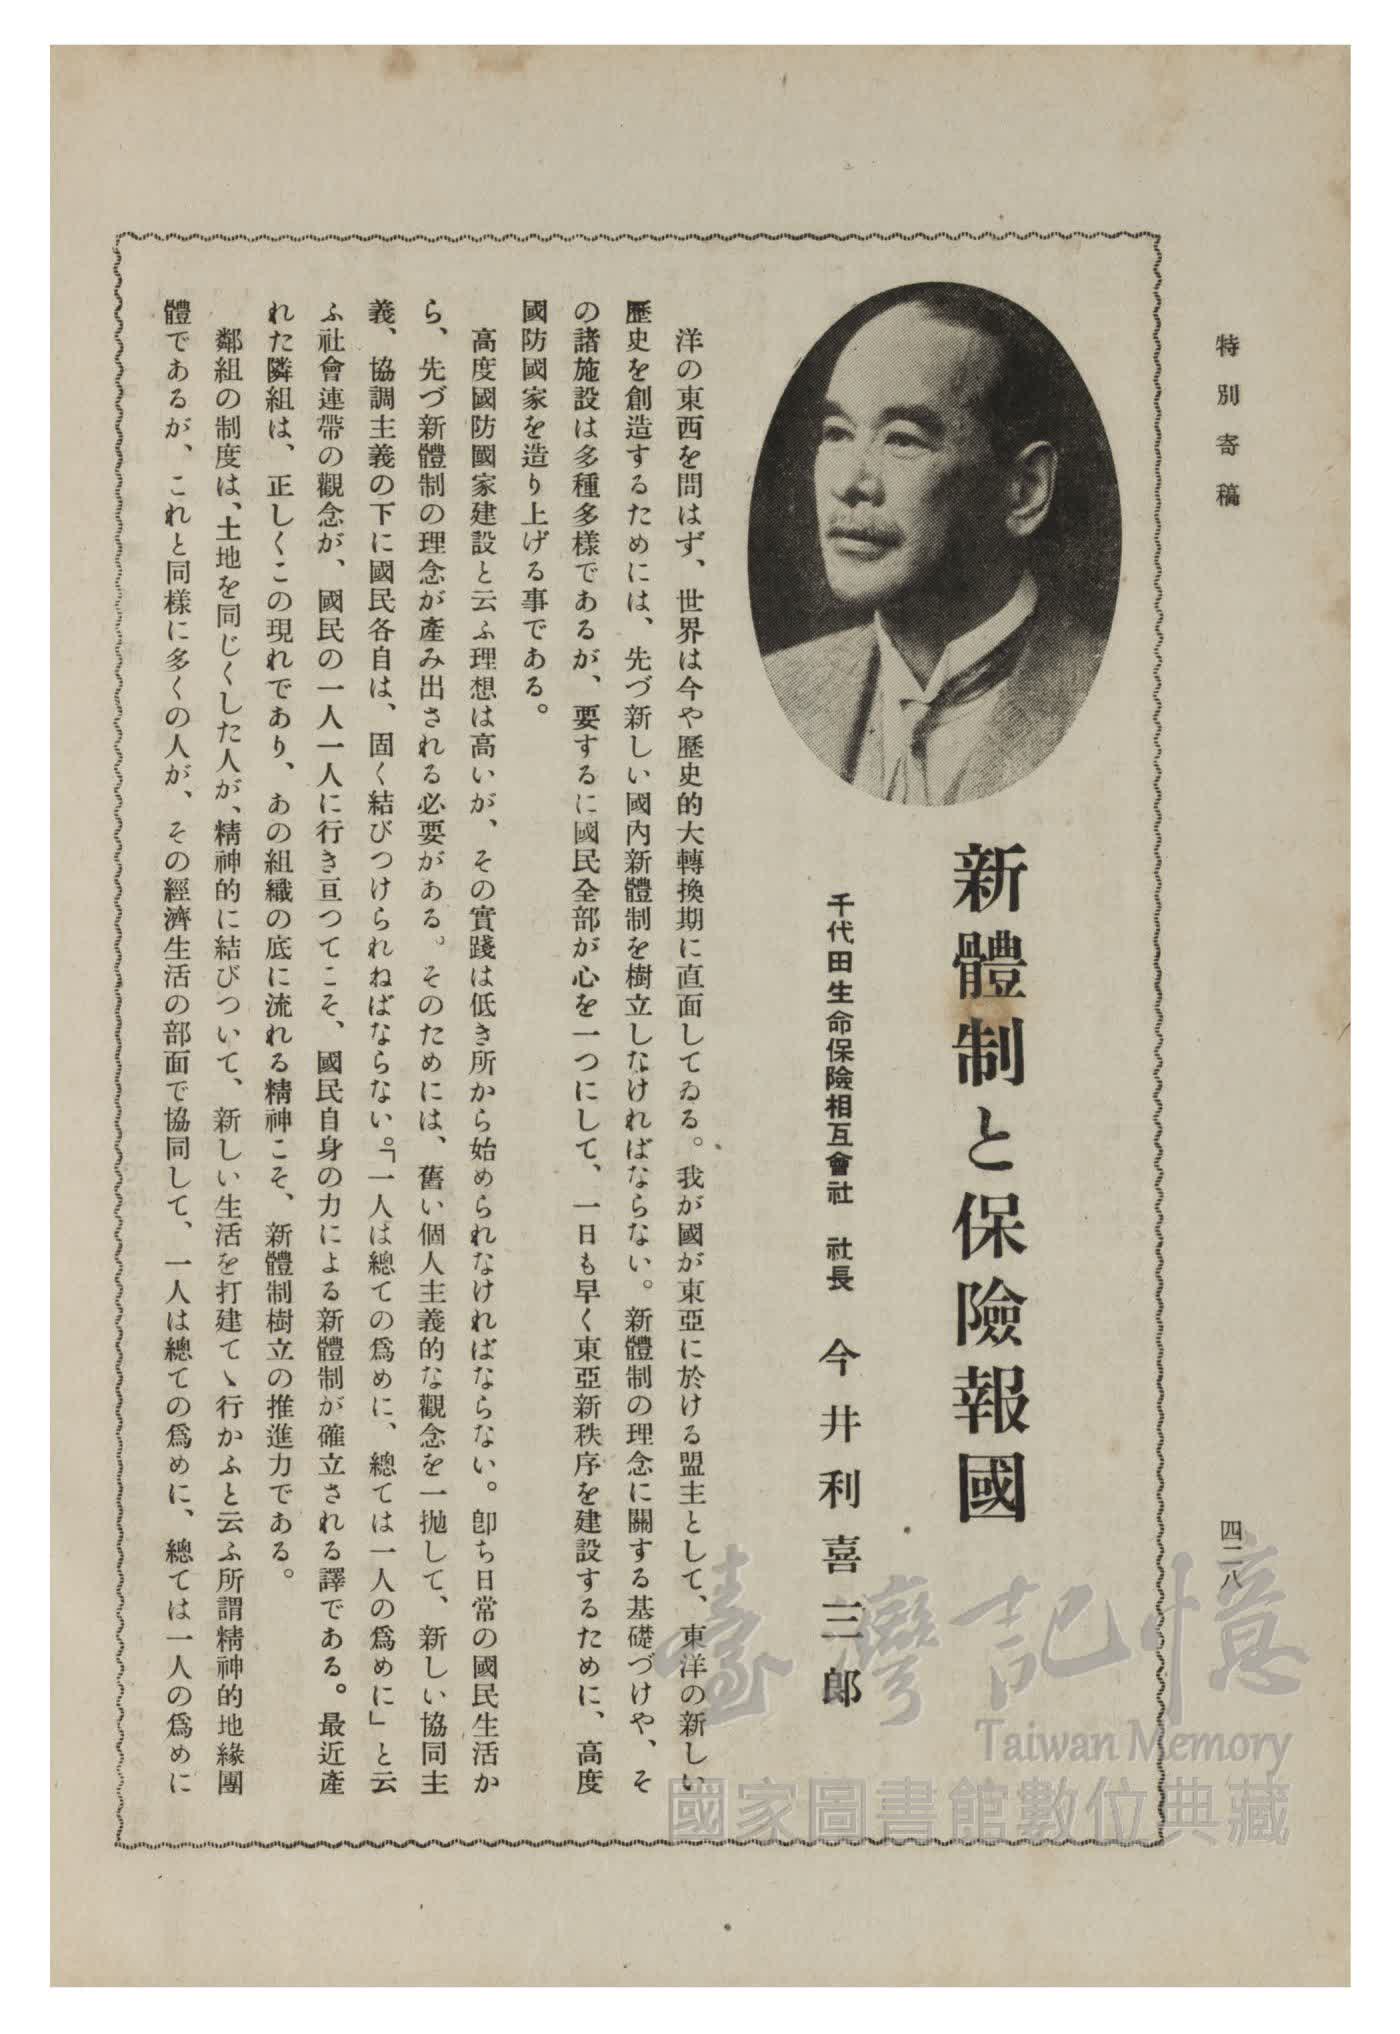 特別寄稿
四二八
新體制と保險報國
千代田生命保險相互會社 社長 今井利喜三郎
洋の東西を問はず、世界は今や歷史的大轉換期に直面してゐる。我が國が東亞に於ける盟主として、東洋の新しい
歷史を創造するためには、先づ新しい國內新體制を樹立しなければならない。新體制の理念に關する基礎づけや、そ
の諸施設は多種多樣であるが、要するに國民全部が心を一つにして、一日も早く東亞新秩序を建設するために、高度
國防國家を造り上げる事である。
高度國防國家建設と云ふ理想は高いが、その實踐は低き所から始められなければならない。卽ち日常の國民生活か
ら、先づ新體制の理念が產み出される必要がある。そのためには、舊い個人主義的な觀念を一拋して、新しい協同主
義、協調主義の下に國民各自は、固く結びつけられねばならない。「一人は總ての爲めに、總ては一人の爲めに」と云
ふ社會連帶の觀念が、國民の一人一人に行き亘つてこそ、國民自身の力による新體制が確立される譯である。最近產
れた隣組は、正しくこの現れであり、あの組織の底に流れる精神こそ、新體制樹立の推進力である。
鄰組の制度は、土地を同じくした人が、精神的に結びついて、新しい生活を打建てゝ行かふと云ふ所謂精神的地緣團
體であるが、これと同樣に多くの人が、その經濟生活の部面で協同して、一人は總ての爲めに、總ては一人の爲めに
臺灣記憶
Taiwan Memory
國家圖書館數位典藏